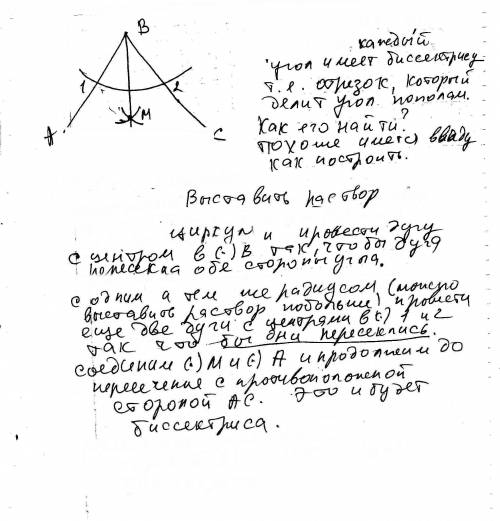 B
1
2
M
A
C
каждый
угол имеет биссектрису
т.е. отрезок, который
делит угол пополам.
Как его найти?
похоже имеется ввиду
как построить.
Выставить раствор
циркуля и провести дугу
с центром в (·) B так, чтобы дуга
пересекла обе стороны угла.
с одним а тем же радиусом (можно
выставить раствор побольше) провести
еще две дуги с центрами в (·) 1 и 2
так что бы они пересеклись.
соединим (·) M и (·) A и продолжим до
пересечения с противоположной
стороной AC. Это и будет
биссектриса.